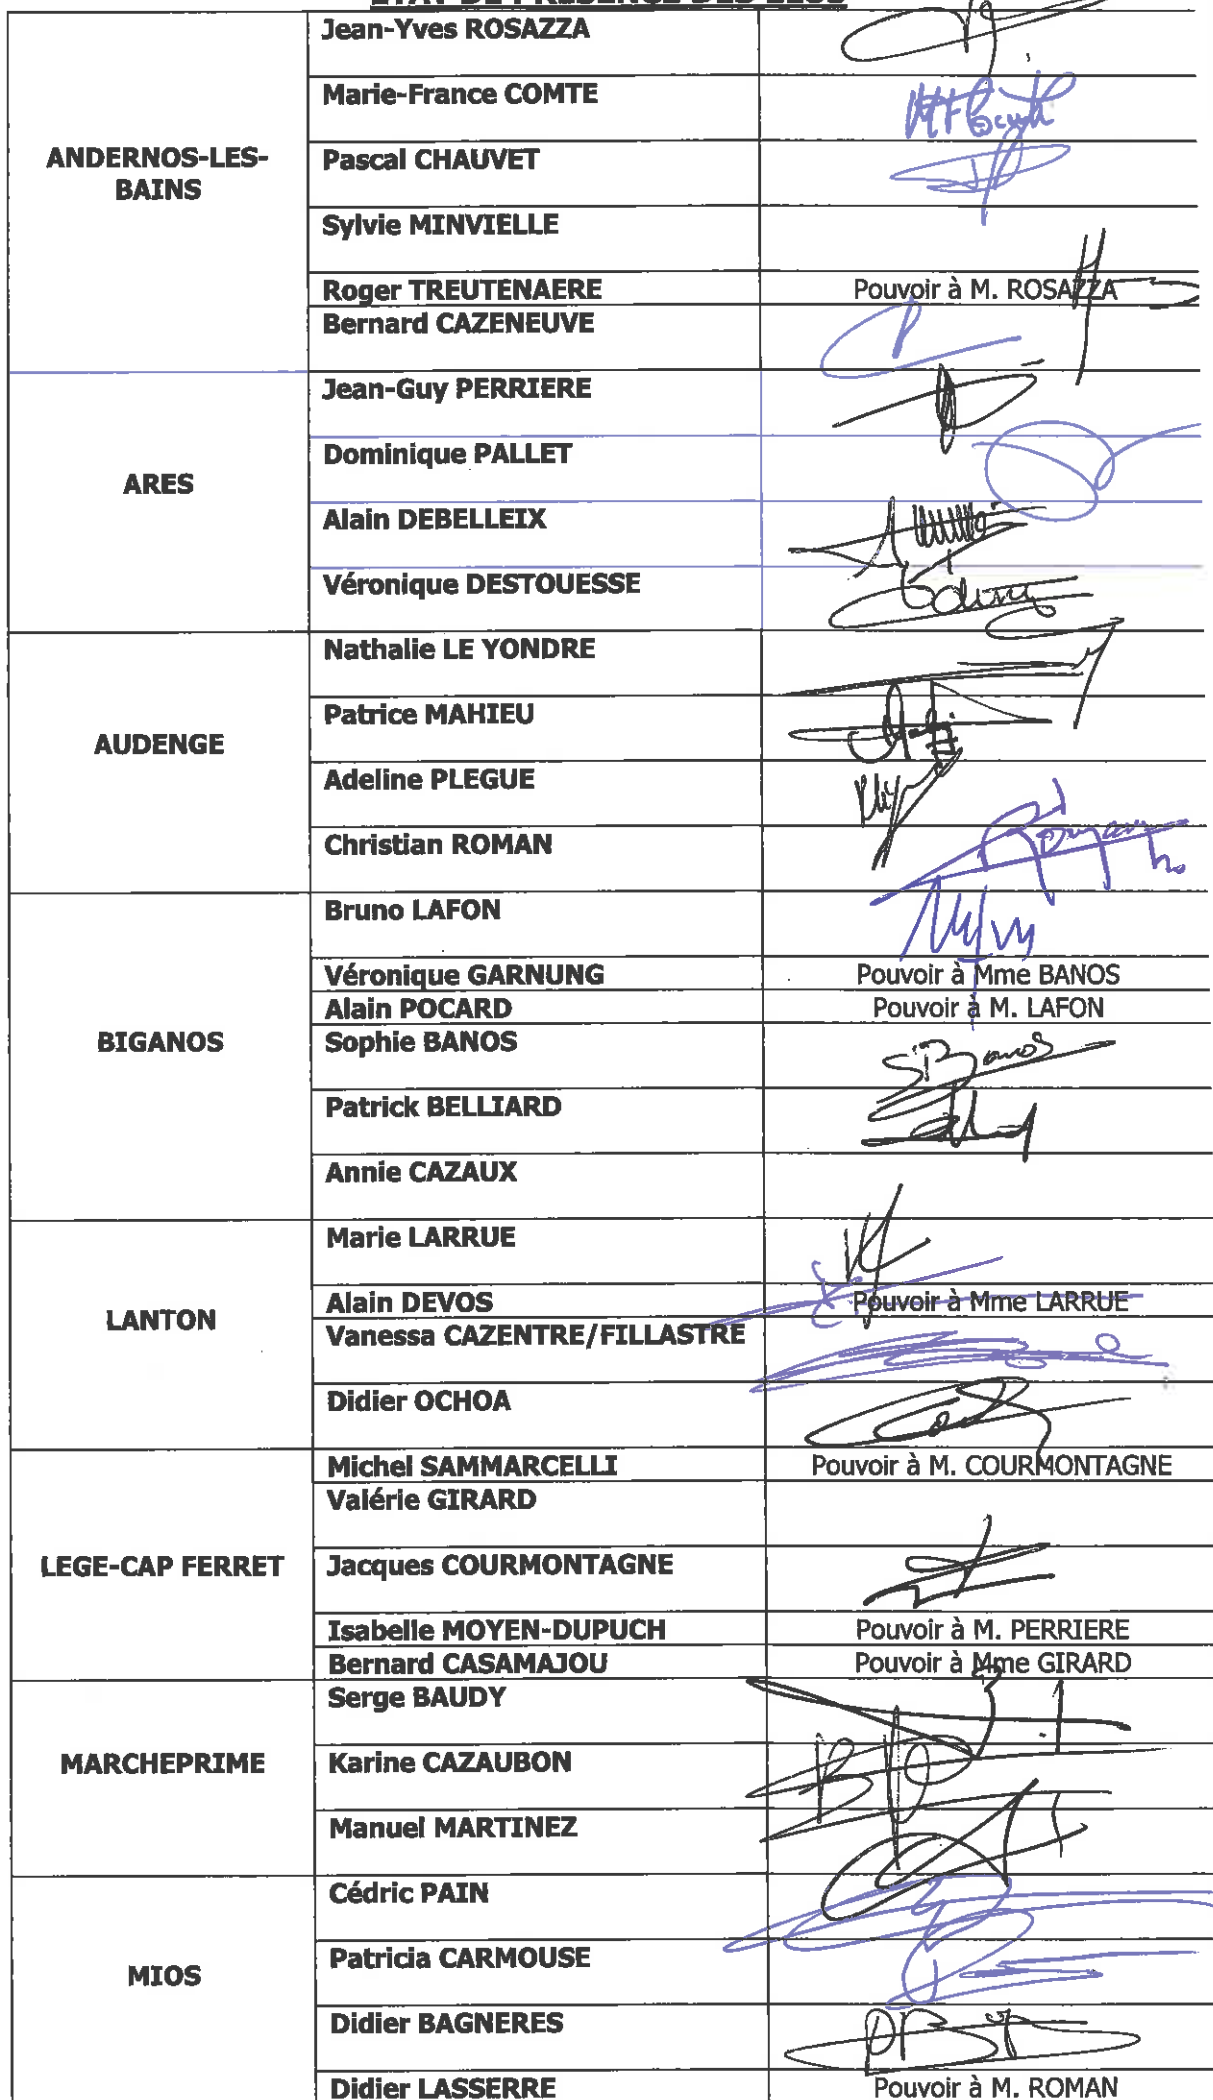 ETAT DE PRESENCE DES ELUS
ANDERNOS-LES-
BAINS
Jean-Yves ROSAZZA
Marie-France COMTE
Pascal CHAUVET
Sylvie MINVIELLE
Roger TREUTENAERE Pouvoir à M. ROSAZZA
Bernard CAZENEUVE
ARES
Jean-Guy PERRIERE
Dominique PALLET
Alain DEBELLEIX
Véronique DESTOUESSE
AUDENGE
Nathalie LE YONDRE
Patrice MAHIEU
Adeline PLEGUE
Christian ROMAN
BIGANOS
Bruno LAFON
Véronique GARNUNG Pouvoir à Mme BANOS
Alain POCARD Pouvoir à M. LAFON
Sophie BANOS SBanos
Patrick BELLIARD
Annie CAZAUX
LANTON
Marie LARRUE
Alain DEVOS Pouvoir à Mme LARRUE
Vanessa CAZENTRE/FILLASTRE
Didier OCHOA
LEGE-CAP FERRET
Michel SAMMARCELLI Pouvoir à M. COURMONTAGNE
Valérie GIRARD
Jacques COURMONTAGNE
Isabelle MOYEN-DUPUCH Pouvoir à M. PERRIERE
Bernard CASAMAJOU Pouvoir à Mme GIRARD
MARCHEPRIME
Serge BAUDY
Karine CAZAUBON
Manuel MARTINEZ
MIOS
Cédric PAIN
Patricia CARMOUSE
Didier BAGNERES
Didier LASSERRE Pouvoir à M. ROMAN